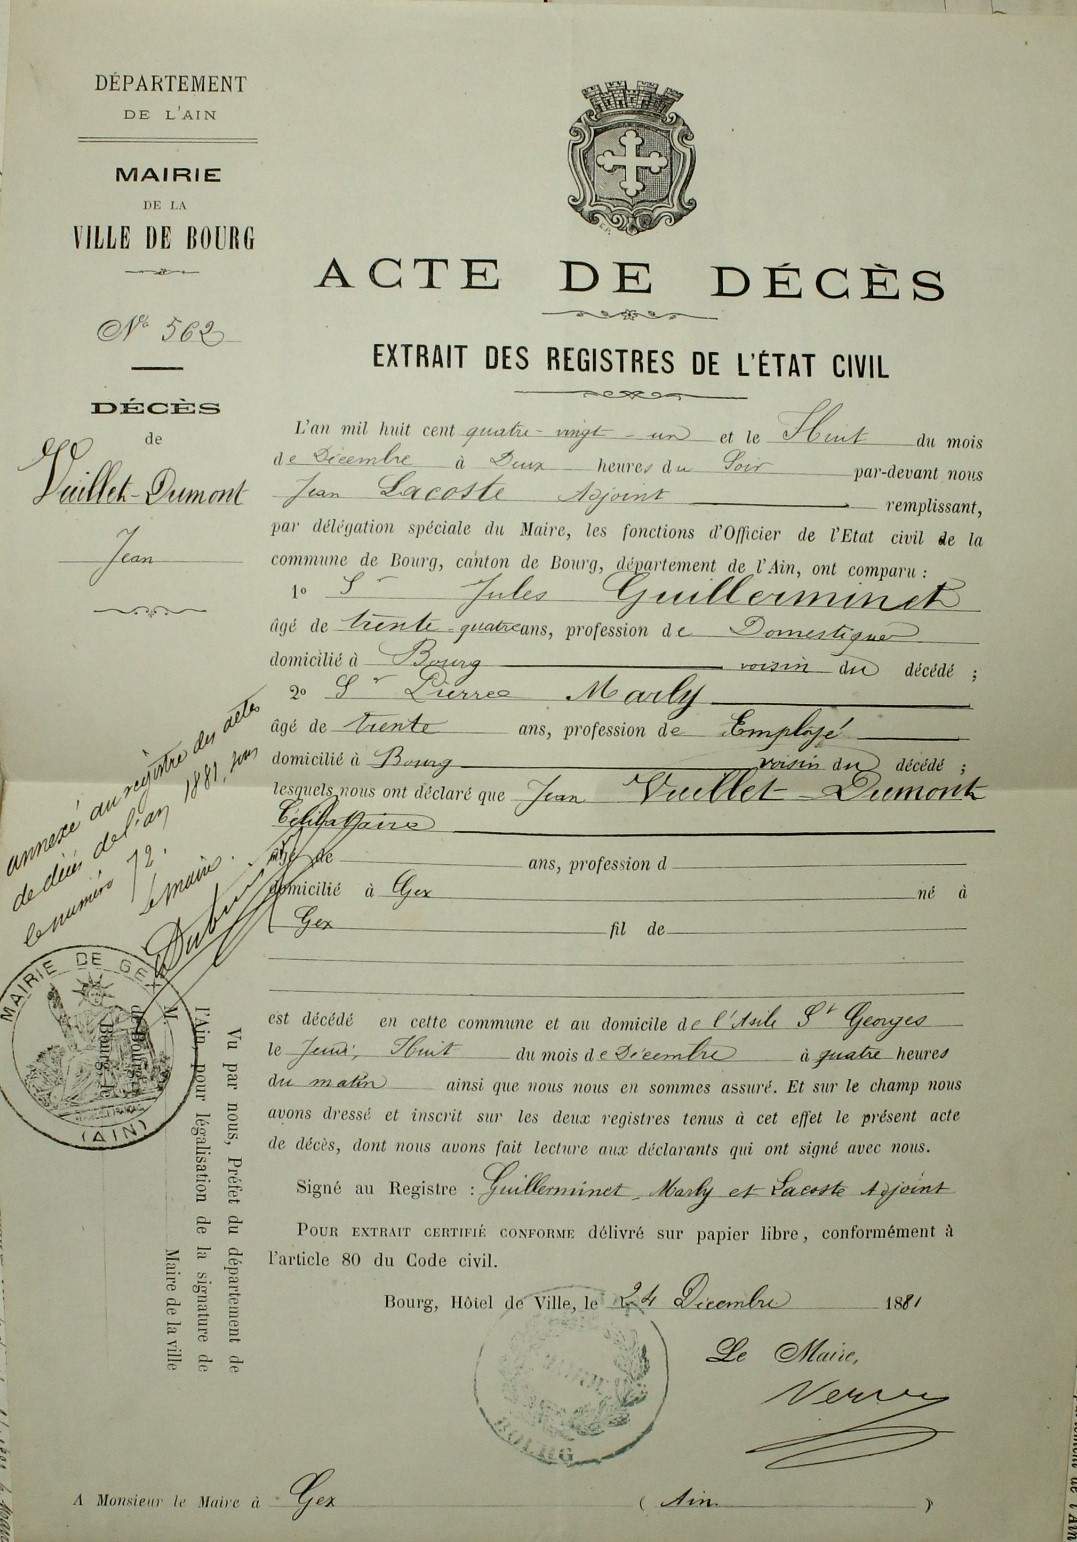 DÉPARTEMENT
DE L'AIN
MAIRIE
DE LA
VILLE DE BOURG
N° 562
DÉCÈS
de
Vuillet-Dumont
Jean
ACTE DE DÉCÈS
EXTRAIT DES REGISTRES DE L'ÉTAT CIVIL
L'an mil huit cent quatre-vingt-un et le Huit du mois
de Décembre à Deux heures du Soir par-devant nous
Jean Lacoste Adjoint remplissant,
par délégation spéciale du Maire, les fonctions d'Officier de l'Etat civil de la
commune de Bourg, canton de Bourg, département de l'Ain, ont comparu :
1° Sr Jules Guillerminet
âgé de trente-quatre ans, profession de Domestique
domicilié à Bourg voisin du décédé ;
2° Sr Pierre Marly
âgé de trente ans, profession de Employé
domicilié à Bourg voisin du décédé ;
lesquels nous ont déclaré que Jean Vuillet-Dumont
Célibataire
âgé de ans, profession d
domicilié à Gex né à
Gex fil de
est décédé en cette commune et au domicile de l'Asile St Georges
le Jeudi, Huit du mois de Décembre à quatre heures
du matin ainsi que nous nous en sommes assuré. Et sur le champ nous
avons dressé et inscrit sur les deux registres tenus à cet effet le présent acte
de décès, dont nous avons fait lecture aux déclarants qui ont signé avec nous.
Signé au Registre : Guillerminet, Marly et Lacoste Adjoint
POUR EXTRAIT CERTIFIÉ CONFORME délivré sur papier libre, conformément à
l'article 80 du Code civil.
Bourg, Hôtel de Ville, le 24 Décembre 1881
Le Maire,
BOURG
A Monsieur le Maire à Gex (Ain)
annexé au registre des actes
de décès de l'an 1881, sous
le numéro 72.
Le maire.
MAIRIE DE GEX
(AIN)
Vu par nous, Préfet du département de
l'Ain, pour légalisation de la signature de
M. Maire de la ville
de Bourg.
Bourg, le